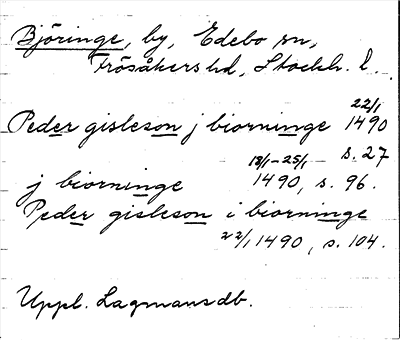 Björinge, by, Edebo sn,
Frösåkers hd, Stockh. l.
22/1
Peder gisleson j biorninge 1490
s. 27
13/1-25/1
j biorninge 1490, s. 96.
Peder gisleson i biorninge
22/1 1490, s. 104.
Uppl. Lagmansdb.